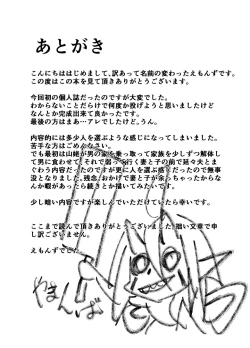 あとがき
こんにちははじめまして、訳あって名前の変わったえもんずです。
この度はこの本を見て頂きありがとうございます。
今回初の個人誌だったのですが大変でした。
わからないことだらけで何度か投げようと思いましたけど
なんとか完成出来て良かったです。
最後の方はまあ…アレでしたけど。うん。
内容的には多少人を選ぶような感じになってしまいました。
苦手な方はごめんなさい。
でも最初は山姥が男の家を乗っ取って家族を少しずつ解体し
て男に食わせてそれで弱って行く妻と子の前で延々夫とま
ぐわう内容だったのですが更に人を選ぶ感じだったので無事
没となりました。残念。おかげで妻と子が余っちゃったからな
んか暇があったら続きとか描いてみたいです。
少し暗い内容ですが楽しんでいただけていたら幸いです。
ここまで読んで頂きありがとうございました。拙い文章で申
し訳ございません。
えもんずでした。
やまんば